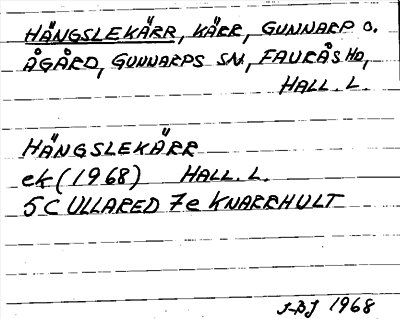 HÄNGSLEKÄRR, KÄRR, GUNNARP O.
ÅGÅRD, GUNNARPS SN, FAURÅS HD,
HALL. L.
HÄNGSLEKÄRR
ek (1968) HALL. L.
5C ULLARED 7e KNARRHULT
J-BJ 1968